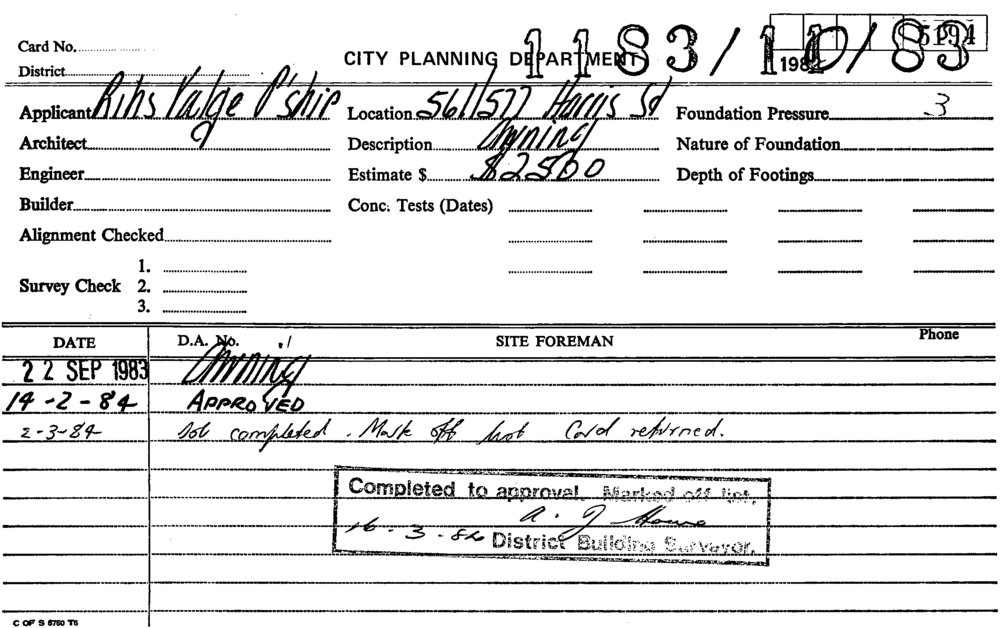 5194
1183/10/83
Card No.
CITY PLANNING DEPARTMENT
198
District
Applicant Rihs Valge P'ship Location 561/577 Harris St Foundation Pressure 3
Architect Description Awning Nature of Foundation
Engineer Estimate $ $2500 Depth of Footings
Builder Conc. Tests (Dates)
Alignment Checked
Survey Check 1.
2.
3.
DATE D.A. No. SITE FOREMAN Phone
22 SEP 1983 Awning
14-2-84 APPROVED
2-3-84 Job completed. Mark off list Card returned.
Completed to approval. Marked off list.
16-3-84 A. J
District Building Surveyor.
C OF S 5760 T6